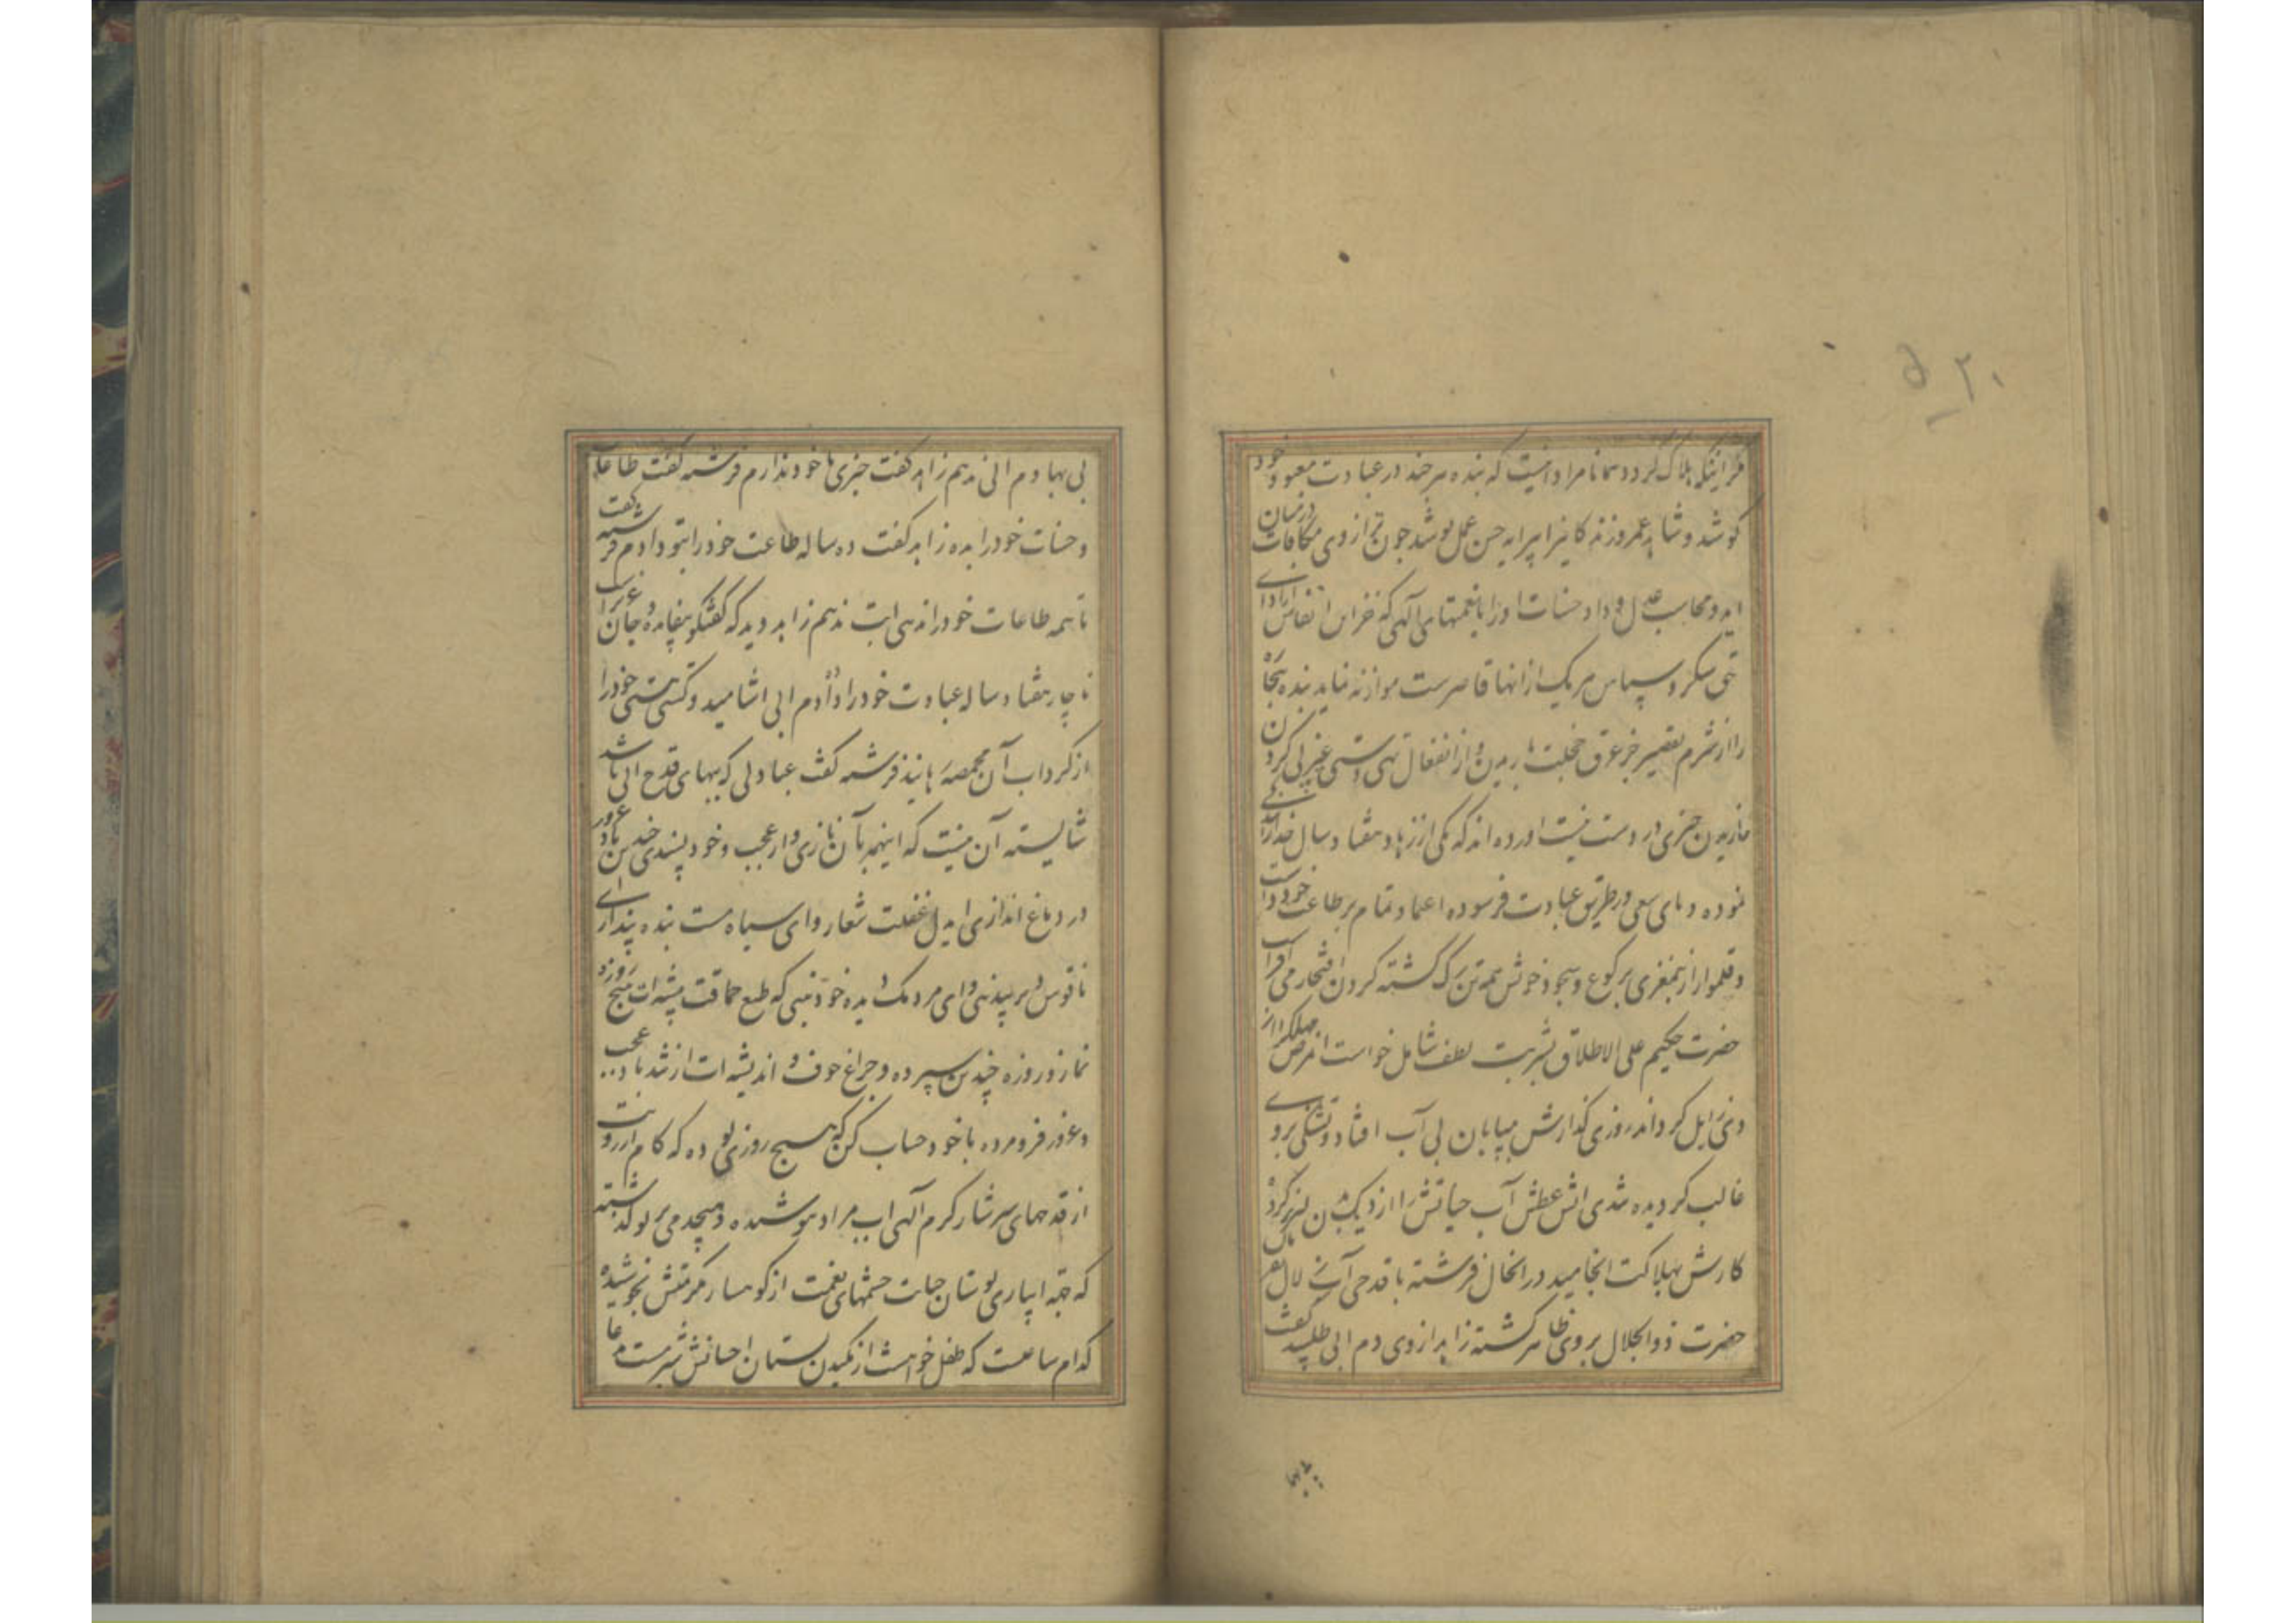 ۵۲۰
گردد همانا مراد اینست که بنده هر چند در عبادت معبود خود
کوشد و شاهد عمر روزنه کانیرا پیرایه حسن عمل پوشد چون ترازوی مکافات درمیان
اید و محاسب عدل و داد حسنات اورا با نعمتهای آلهی که انفاس
سکر و سپاس هر یک از انها قاصرست موازنه نماید بنده
را از شرم تقصیر جز عرق خجلت باریدن و از انفعال تهی دستی
چیزی در دست نیست اورده اند که یکی از زهاد هفتاد سال
نموده و پای سعی در طریق عبادت فرسوده اعتماد تمام بر طاعت خود داشت
و قلموار از بیمغزی برکوع و سجود خویش همه تن رک کشته کردن افتخار می افراخت
حضرت حکیم علی الاطلاق بشربت لطف شامل خواست از مرض مهلک
زایل کرداند روزی کذارش ببیابان بی آب افتاد و تشنکی برو
غالب کردیده اتش عطش آب حیاتش را از دیک بدن
کارش بهلاکت انجامید در انحال فرشته با قدحی آب زلال
حضرت ذو الجلال بروی ظاهر کشته زاهد از وی دم ابی طلبید گفت
بی بها
بی بها دم ابی ندهم زاهد کفت چیزی با خود ندارم فرشته کفت طاعات
و حسنات خود را بده زاهد کفت ده ساله طاعت خود را بتو دادم فرشته کفت
تا همه طاعات خود را ندهی ابت ندهم زاهد دید که کفتکو بیفایده
ناچار هفتاد ساله عبادت خود را داد و دم ابی اشامید و کشتی هستی خود را
از کرداب آن مخمصه رهانید فرشته کفت عبادتی که بهای قدح ابی باشد
شایسته آن نیست که اینهمه بآن نازی و از عجب و خود پسندی چندین باد غرور
در دماغ اندازی ای دل غفلت شعار و ای سیاه مست بنده پندار
ناقوس و ای مردمک دیده خود بینی که طبع حماقت پیشه ات
نماز و روزه چندین سپرده و چراغ خوف اندیشه ات از تند باد عجب
و غرور فرو مرده با خود حساب کن که هیچ روزی بوده که کام ارزویت
از قدحهای سرشار کرم آلهی اب مراد ننوشیده و هیچ دمی بر تو کذشته
که جهة ابیاری بوستان حیات چشمهای نعمت از کوهسار مکرمتش نجوشیده
کدام ساعت که طفل خواهشت از مکیدن پستان احسانش شیر مست